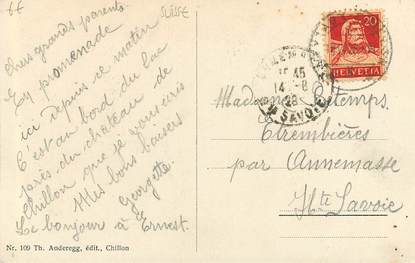 SUISSE
Chers grands parents
En promenade
ici depuis ce matin
C'est au bord du lac
près du château de
Chillon que je vous écris
Mes bons baisers
Georgette
Le bonjour à Ernest.
Nr. 109 Th. Anderegg, édit., Chillon
20
HELVETIA
15 45
14 -8
28
Hte SAVOIE
Madame
Etrembières
par Annemasse
Hte Savoie